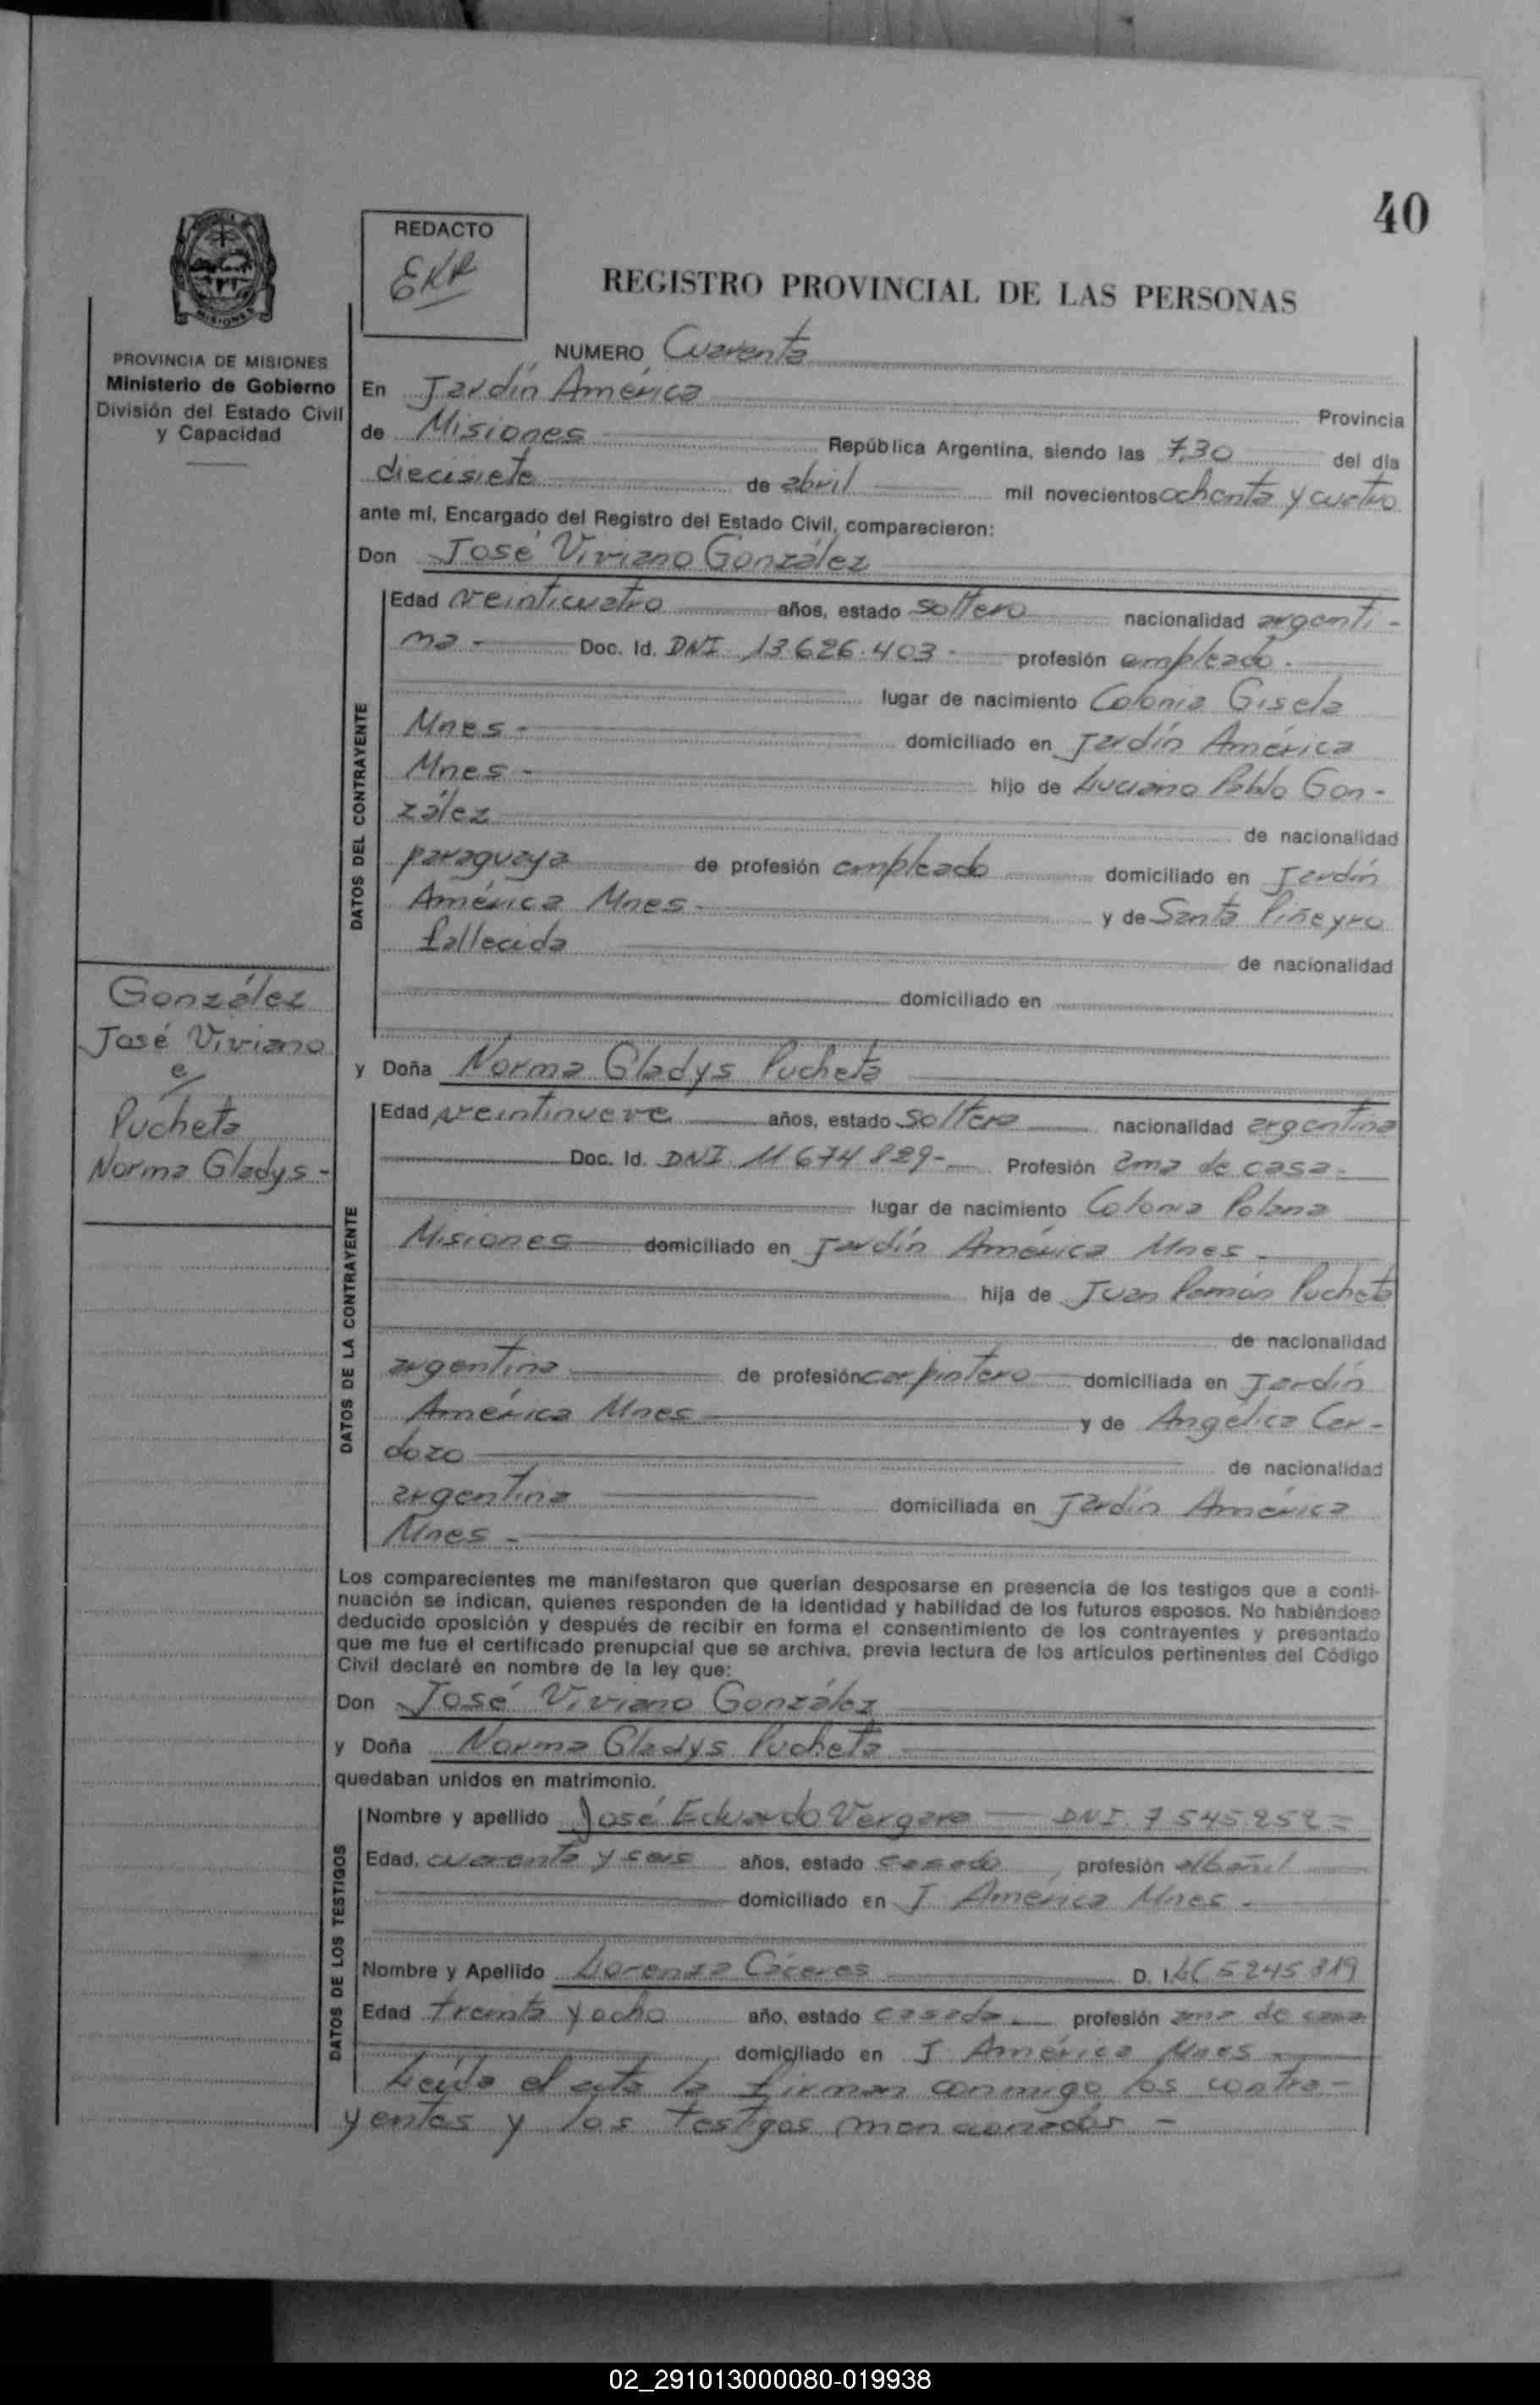 40
REDACTO
REGISTRO PROVINCIAL DE LAS PERSONAS
MISIONES
PROVINCIA DE MISIONES
Ministerio de Gobierno
División del Estado Civil
y Capacidad
NUMERO Cuarenta
En Jardín América Provincia
de Misiones República Argentina, siendo las 7,30 del día
diecisiete de abril mil novecientos ochenta y cuatro
ante mí, Encargado del Registro del Estado Civil, comparecieron:
Don José Viviano González
DATOS DEL CONTRAYENTE
Edad veinticuatro años, estado soltero nacionalidad argenti-
na - Doc. Id. DNI 13.626.403 - profesión empleado.
lugar de nacimiento Colonia Gisela
Mnes - domiciliado en Jardín América
Mnes - hijo de Luciano Pablo Gon-
zález de nacionalidad
paraguaya de profesión empleado domiciliado en Jardín
América Mnes. y de Santa Piñeyro
fallecida de nacionalidad
domiciliado en
González
José Viviano
c/
Pucheta
Norma Gladys -
y Doña Norma Gladys Pucheta
DATOS DE LA CONTRAYENTE
Edad veintinueve años, estado soltera nacionalidad argentina
Doc. Id. DNI 11 674 829 - Profesión ama de casa -
lugar de nacimiento Colonia Polana
Misiones domiciliado en Jardín América Mnes -
hija de Juan Ramón Pucheta
de nacionalidad
argentina de profesión carpintero domiciliada en Jardín
América Mnes y de Angélica Car-
dozo de nacionalidad
argentina domiciliada en Jardín América
Mnes -
Los comparecientes me manifestaron que querían desposarse en presencia de los testigos que a conti-
nuación se indican, quienes responden de la identidad y habilidad de los futuros esposos. No habiéndose
deducido oposición y después de recibir en forma el consentimiento de los contrayentes y presentado
que me fue el certificado prenupcial que se archiva, previa lectura de los artículos pertinentes del Código
Civil declaré en nombre de la ley que:
Don José Viviano González
y Doña Norma Gladys Pucheta
quedaban unidos en matrimonio.
DATOS DE LOS TESTIGOS
Nombre y apellido José Eduardo Vergara DNI 7 545.252 =
Edad, cuarenta y seis años, estado casado profesión albañil
domiciliado en J América Mnes -
Nombre y Apellido Lorenza Cáceres D. I. LC 5245 319
Edad treinta y ocho año, estado casada profesión ama de casa
domiciliado en J América Mnes -
Leída el acta la firman conmigo los contra-
yentes y los testigos mencionados -
02_291013000080-019938